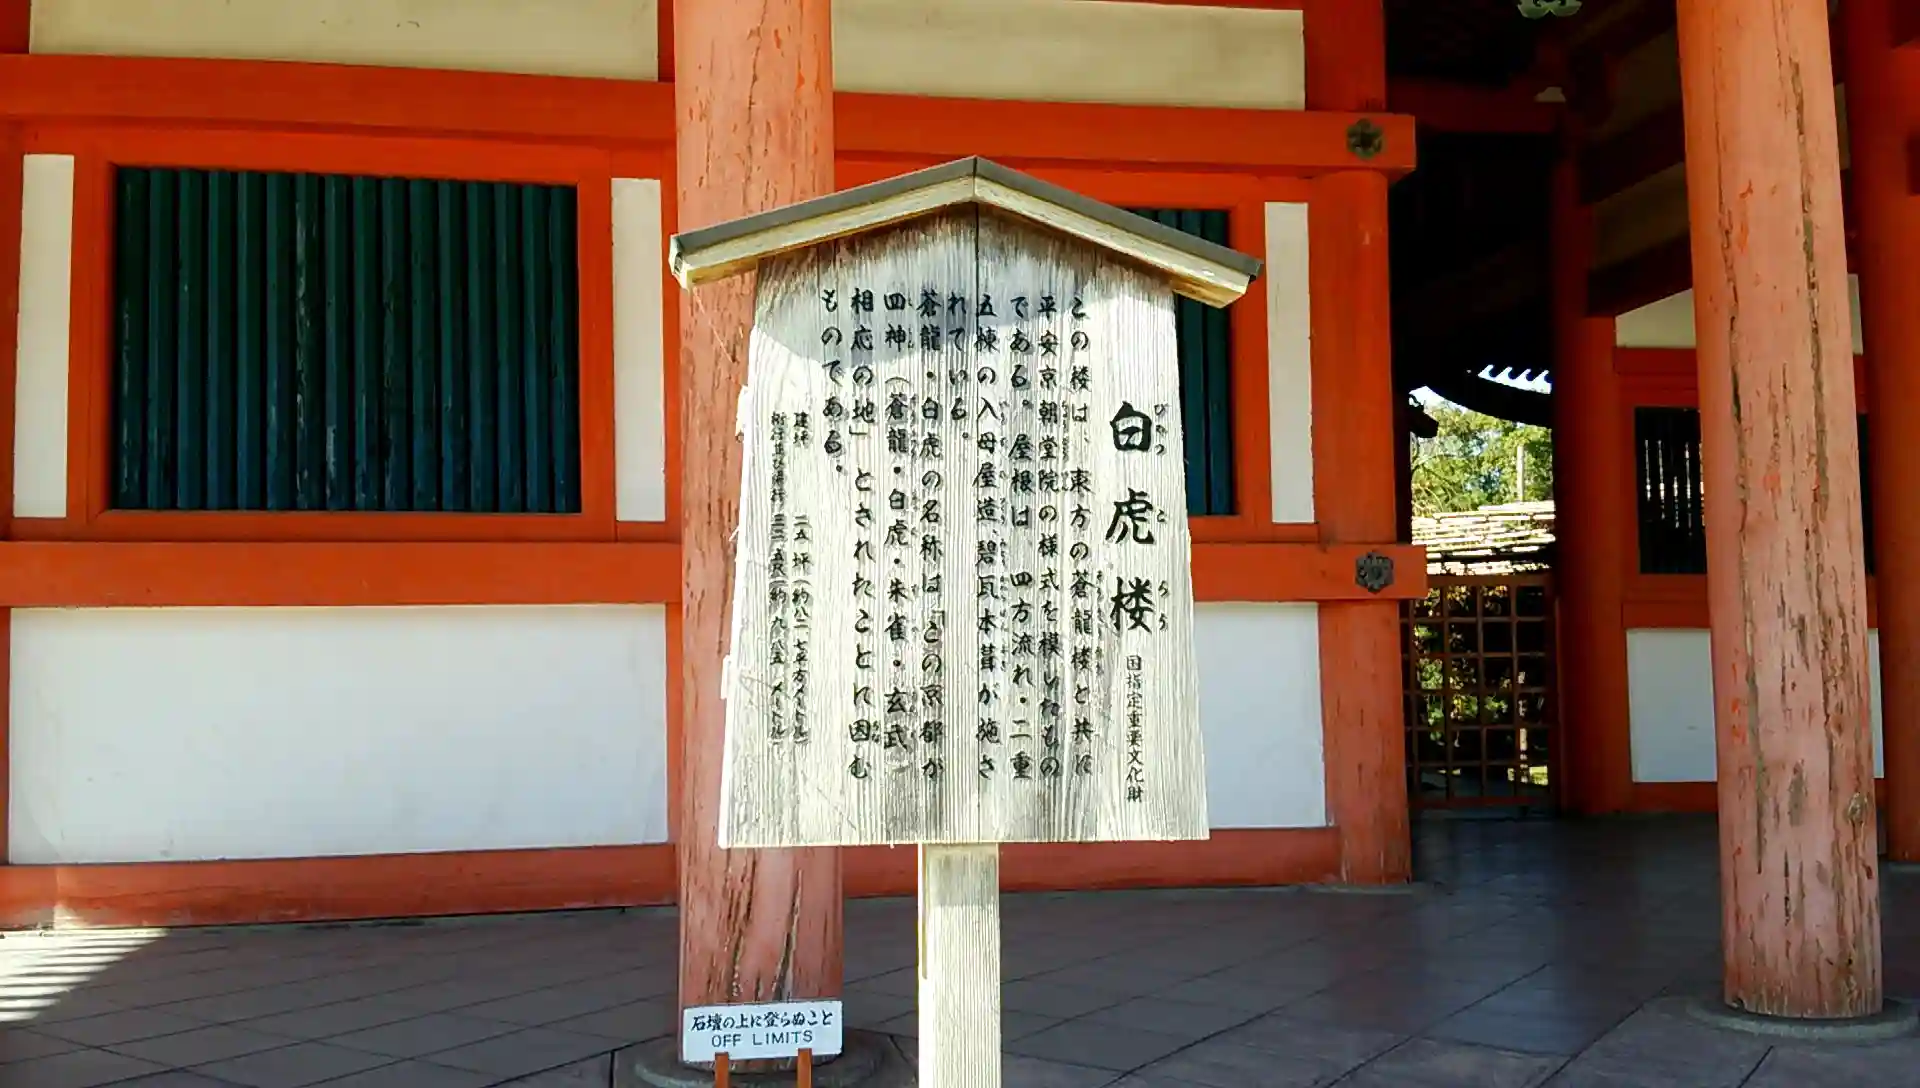 白虎楼 国指定重要文化財
びゃっ こ ろう
この楼は、東方の蒼龍楼と共に
平安京朝堂院の様式を模したもの
である。屋根は、四方流れ・二重
五棟の入母屋造、碧瓦本葺が施さ
れている。
蒼龍・白虎の名称は「この京都が
四神（蒼龍・白虎・朱雀・玄武）
相応の地」とされたことに因む
ものである。
建坪 二五坪（約八二、七平方メートル）
桁行並び梁行 三二、五尺（約九、八五メートル）
石壇の上に登らぬこと
OFF LIMITS